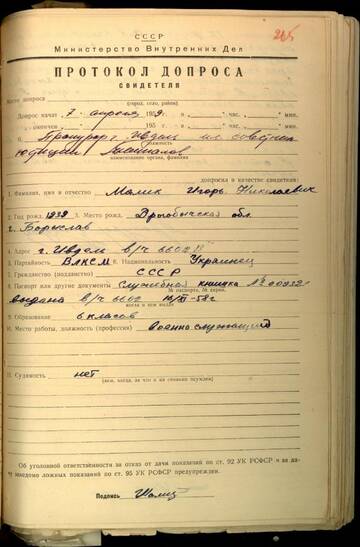 265
СССР
Министерство Внутренних Дел
ПРОТОКОЛ ДОПРОСА
СВИДЕТЕЛЯ
Место допроса
(город, село, район)
Допрос начат 7 апреля 1959. в „ " час. „ " мин.
„ окончен „ " 195 г. в „ " час. „ " мин.
Прокурор г. Ивдель мл советник
юстиции
должность
наименование органа, фамилия
допросила в качестве свидетеля:
1. Фамилия, имя и отчество Малик Игорь Николаевич
2. Год рожд. 1939 3. Место рожд. Дрогобычская обл.
г. Борислав
4. Адрес г. Ивдель в/ч 6602
5. Партийность ВЛКСМ 6. Национальность Украинец
7. Гражданство (подданство) СССР
8. Паспорт или другие документы Служебная книжка №
№ паспорта, № серия,
выдана в/ч 6602 58г
когда и кем выдан
9. Образование 6 классов
10. Место работы, должность (профессия) Военнослужащий
11. Судимость нет
(кем, когда, за что и на сколько осужден)
Об уголовной ответственности за отказ от дачи показаний по ст. 92 УК РСФСР и за да-
чу заведомо ложных показаний по ст. 95 УК РСФСР предупрежден.
Подпись